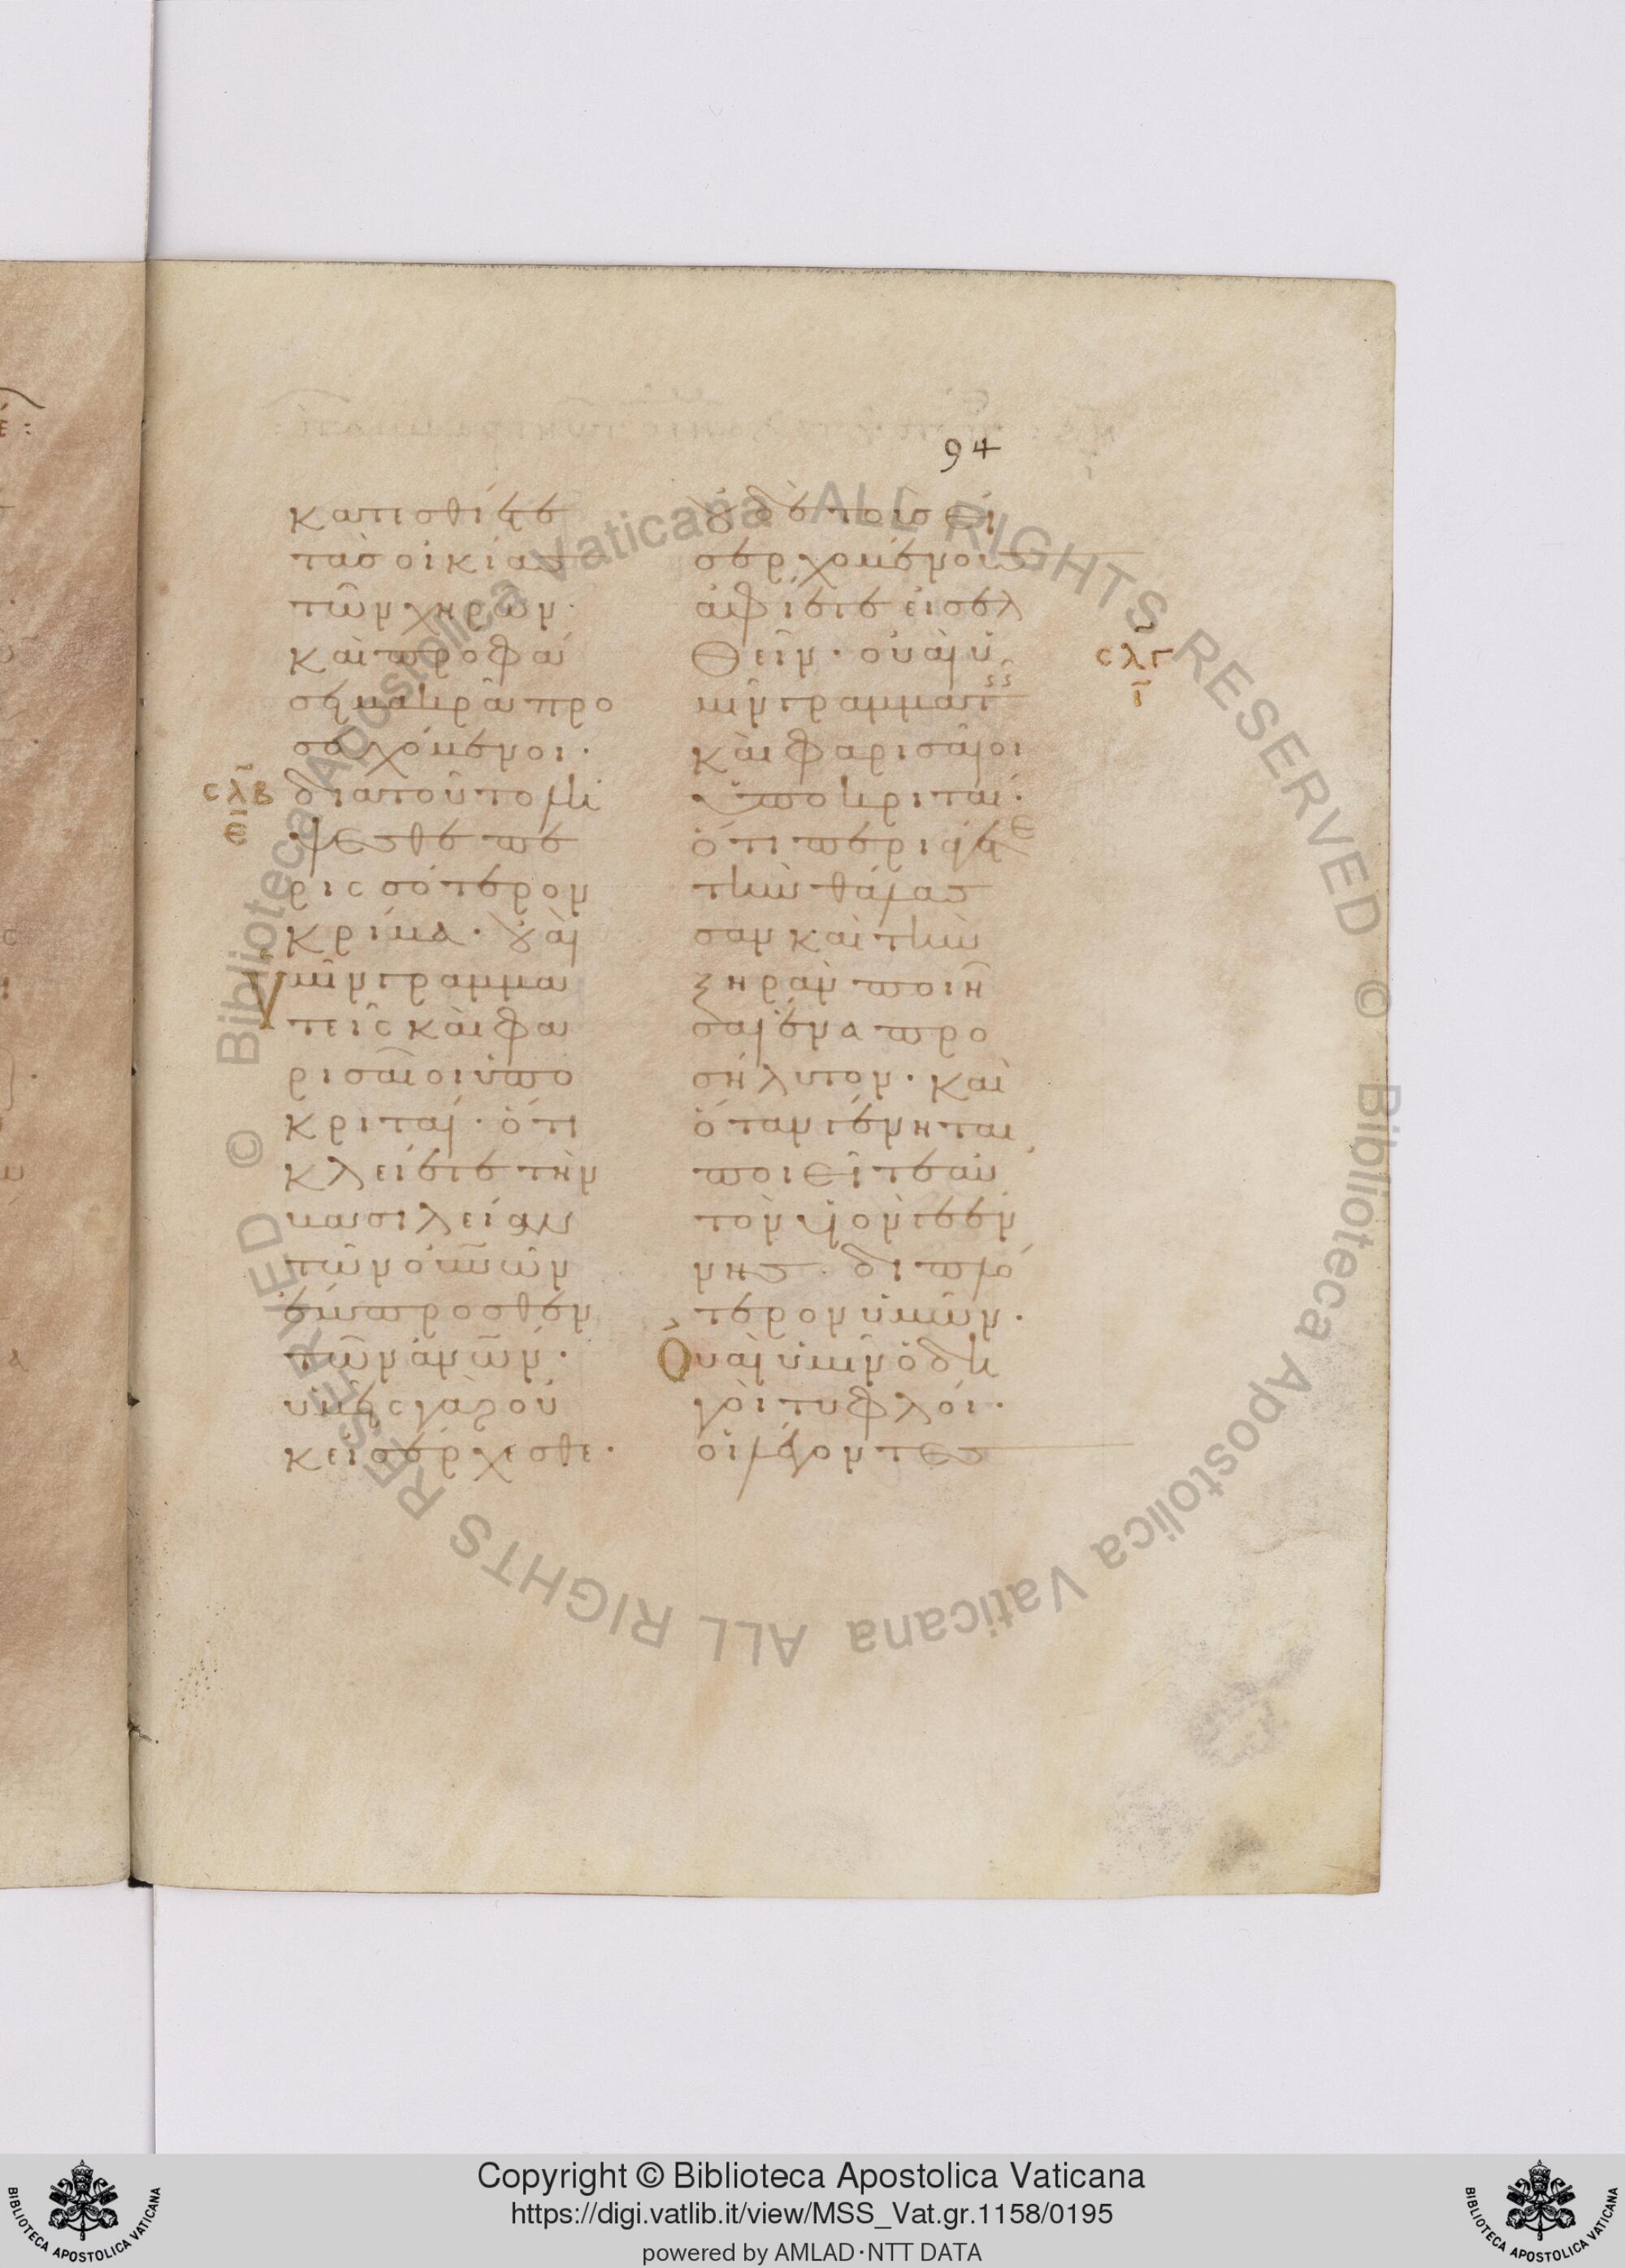 94
κατεσθίετε
τὰς οἰκίας
τῶν χηρῶν·
καὶ προφά
σει μακρᾶ προ
σευχόμενοι·
σλβ
διατοῦτο λή
ψεσθε πε
ρισσότερον
κρίμα· οὐαὶ
ὑμῖν γραμμα
τεῖς καὶ φα
ρισαῖοι ὑπο
κριταί· ὅτι
κλείετε τὴν
βασιλείαν
τῶν οὐνῶν
ἔμπροσθεν
τῶν ἀνῶν·
ὑμεῖς γὰρ οὐ
κεἰσέρχεσθε·
οὐδὲ τοὺς εἰ
σερχομένους
ἀφίετε εἰσελ
θεῖν· οὐαὶ ὑ
σλγ
ι
μῖν γραμματεῖς
καὶ φαρισαῖοι
ὑποκριταί·
ὅτι περιάγετε
τὴν θάλασ
σαν καὶ τὴν
ξηρὰν ποιῆ
σαι ἕνα προ
σήλυτον· καὶ
ὅταν γένηται
ποιεῖτε αὐ
τὸν υἱὸν γεέν
νης διπλό
τερον ὑμῶν·
Οὐαὶ ὑμῖν ὁδη
γοὶ τυφλοί·
οἱ λέγοντες
Copyright © Biblioteca Apostolica Vaticana
https://digi.vatlib.it/view/MSS_Vat.gr.1158/0195
powered by AMLAD·NTT DATA
BIBLIOTECA APOSTOLICA VATICANA
BIBLIOTECA APOSTOLICA VATICANA
© Biblioteca Apostolica Vaticana ALL RIGHTS RESERVED © Biblioteca Apostolica Vaticana ALL RIGHTS RESERVED